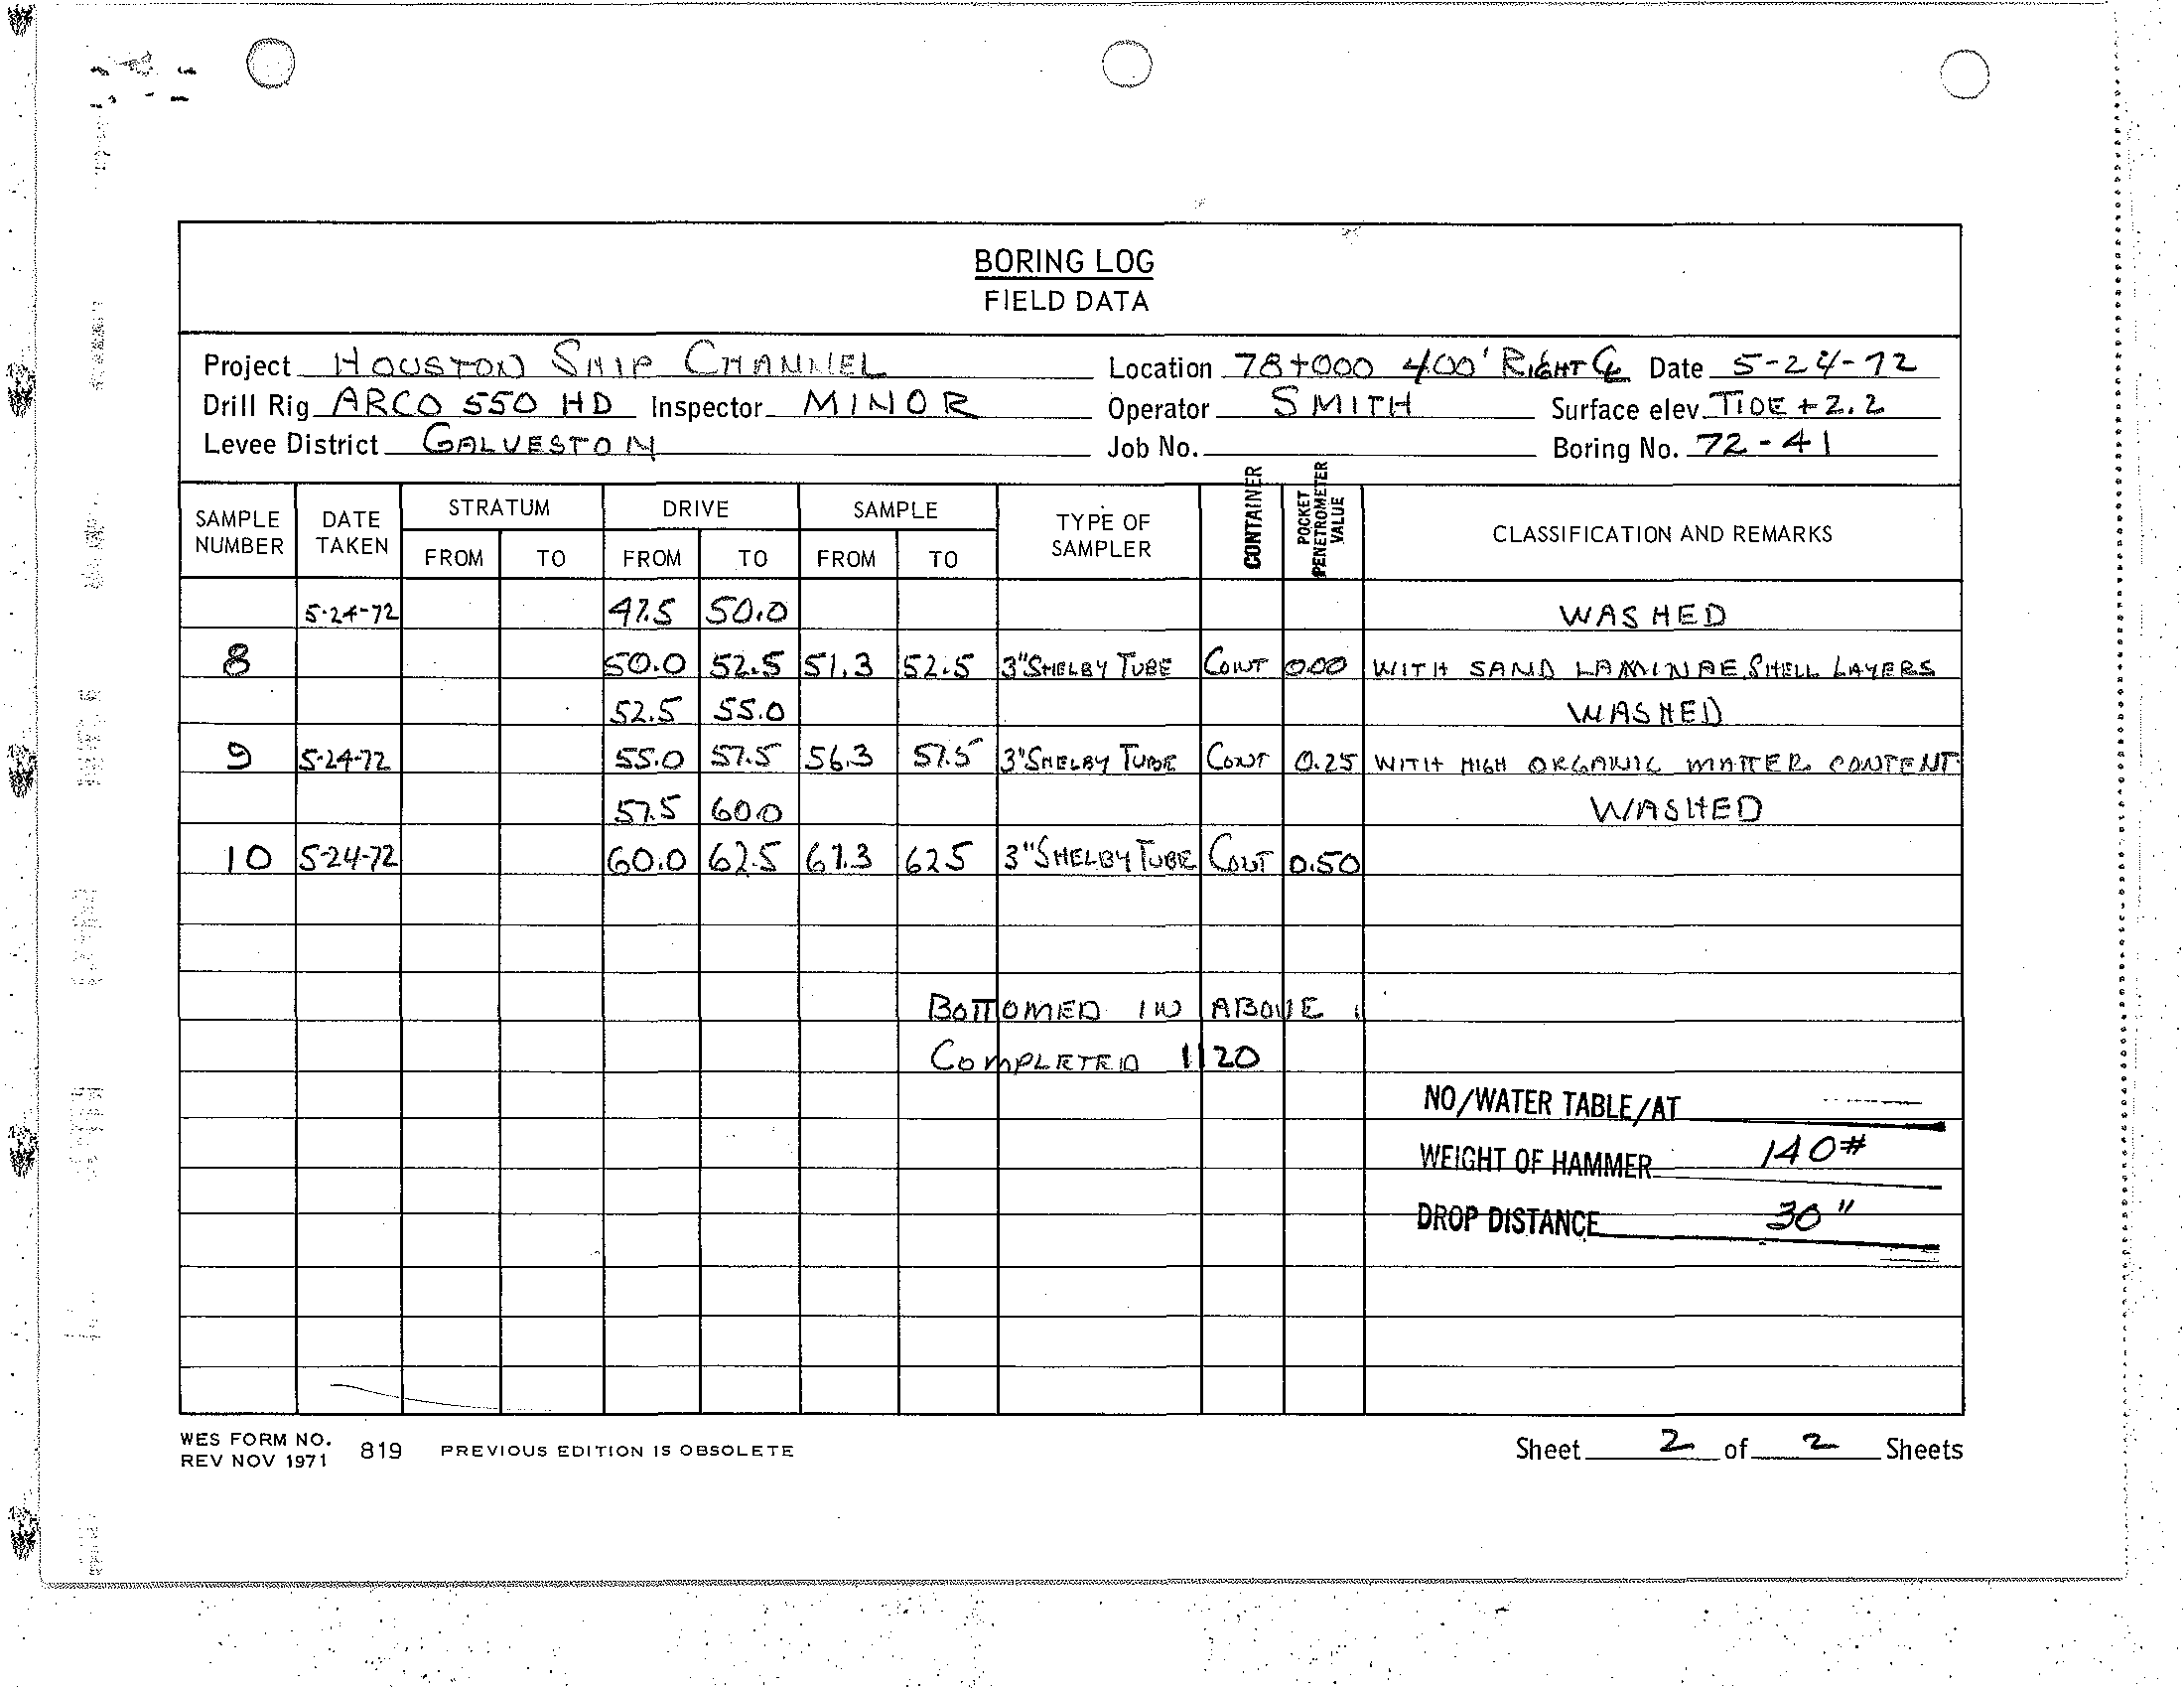 BORING LOG
FIELD DATA
Project HOUSTON SHIP CHANNEL Location 78+000 400' RIGHT ℄ Date 5-24-72
Drill Rig ARCO 550 HD Inspector MINOR Operator SMITH Surface elev. TIDE +2.2
Levee District GALVESTON Job No. Boring No. 72-41
SAMPLE NUMBER DATE TAKEN STRATUM DRIVE SAMPLE TYPE OF SAMPLER CONTAINER POCKET PENETROMETER VALUE CLASSIFICATION AND REMARKS
FROM TO FROM TO FROM TO
5-24-72 47.5 50.0 WASHED
8 50.0 52.5 51.3 52.5 3" SHELBY TUBE CONT 0.00 WITH SAND LAMINAE, SHELL LAYERS
52.5 55.0 WASHED
9 5-24-72 55.0 57.5 56.3 57.5 3" SHELBY TUBE CONT 0.25 WITH HIGH ORGANIC MATTER CONTENT
57.5 60.0 WASHED
10 5-24-72 60.0 62.5 61.3 62.5 3" SHELBY TUBE CONT 0.50
BOTTOMED IN ABOVE
COMPLETED 1120
NO/WATER TABLE/AT ----
WEIGHT OF HAMMER 140#
DROP DISTANCE 30"
WES FORM NO. 819 PREVIOUS EDITION IS OBSOLETE Sheet 2 of 2 Sheets
REV NOV 1971